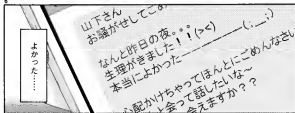 山下さん
お騒がせしてごめ
なんと昨日の夜。°°
生理がきました！！(><)
本当によかった――――(;__;)
心配かけちゃってほんとにごめんなさい
と会って話したいな～
会えますか？？
よかった……